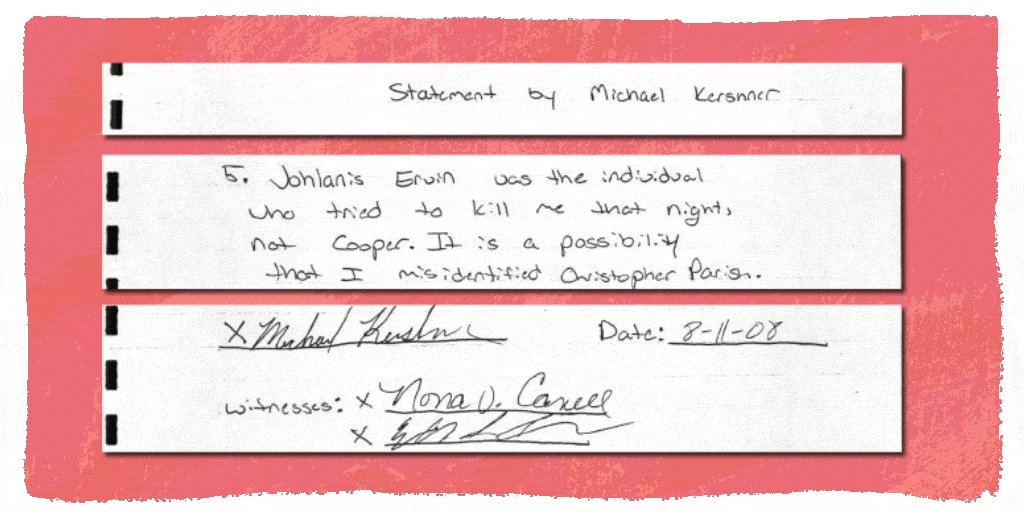 Statement by Michael Kershner
5. Johlanis Ervin was the individual
who tried to kill me that night,
not Cooper. It is a possibility
that I misidentified Christopher Parish.
X Michael Kershner Date: 8-11-08
witnesses: X Nona D. Canell
X